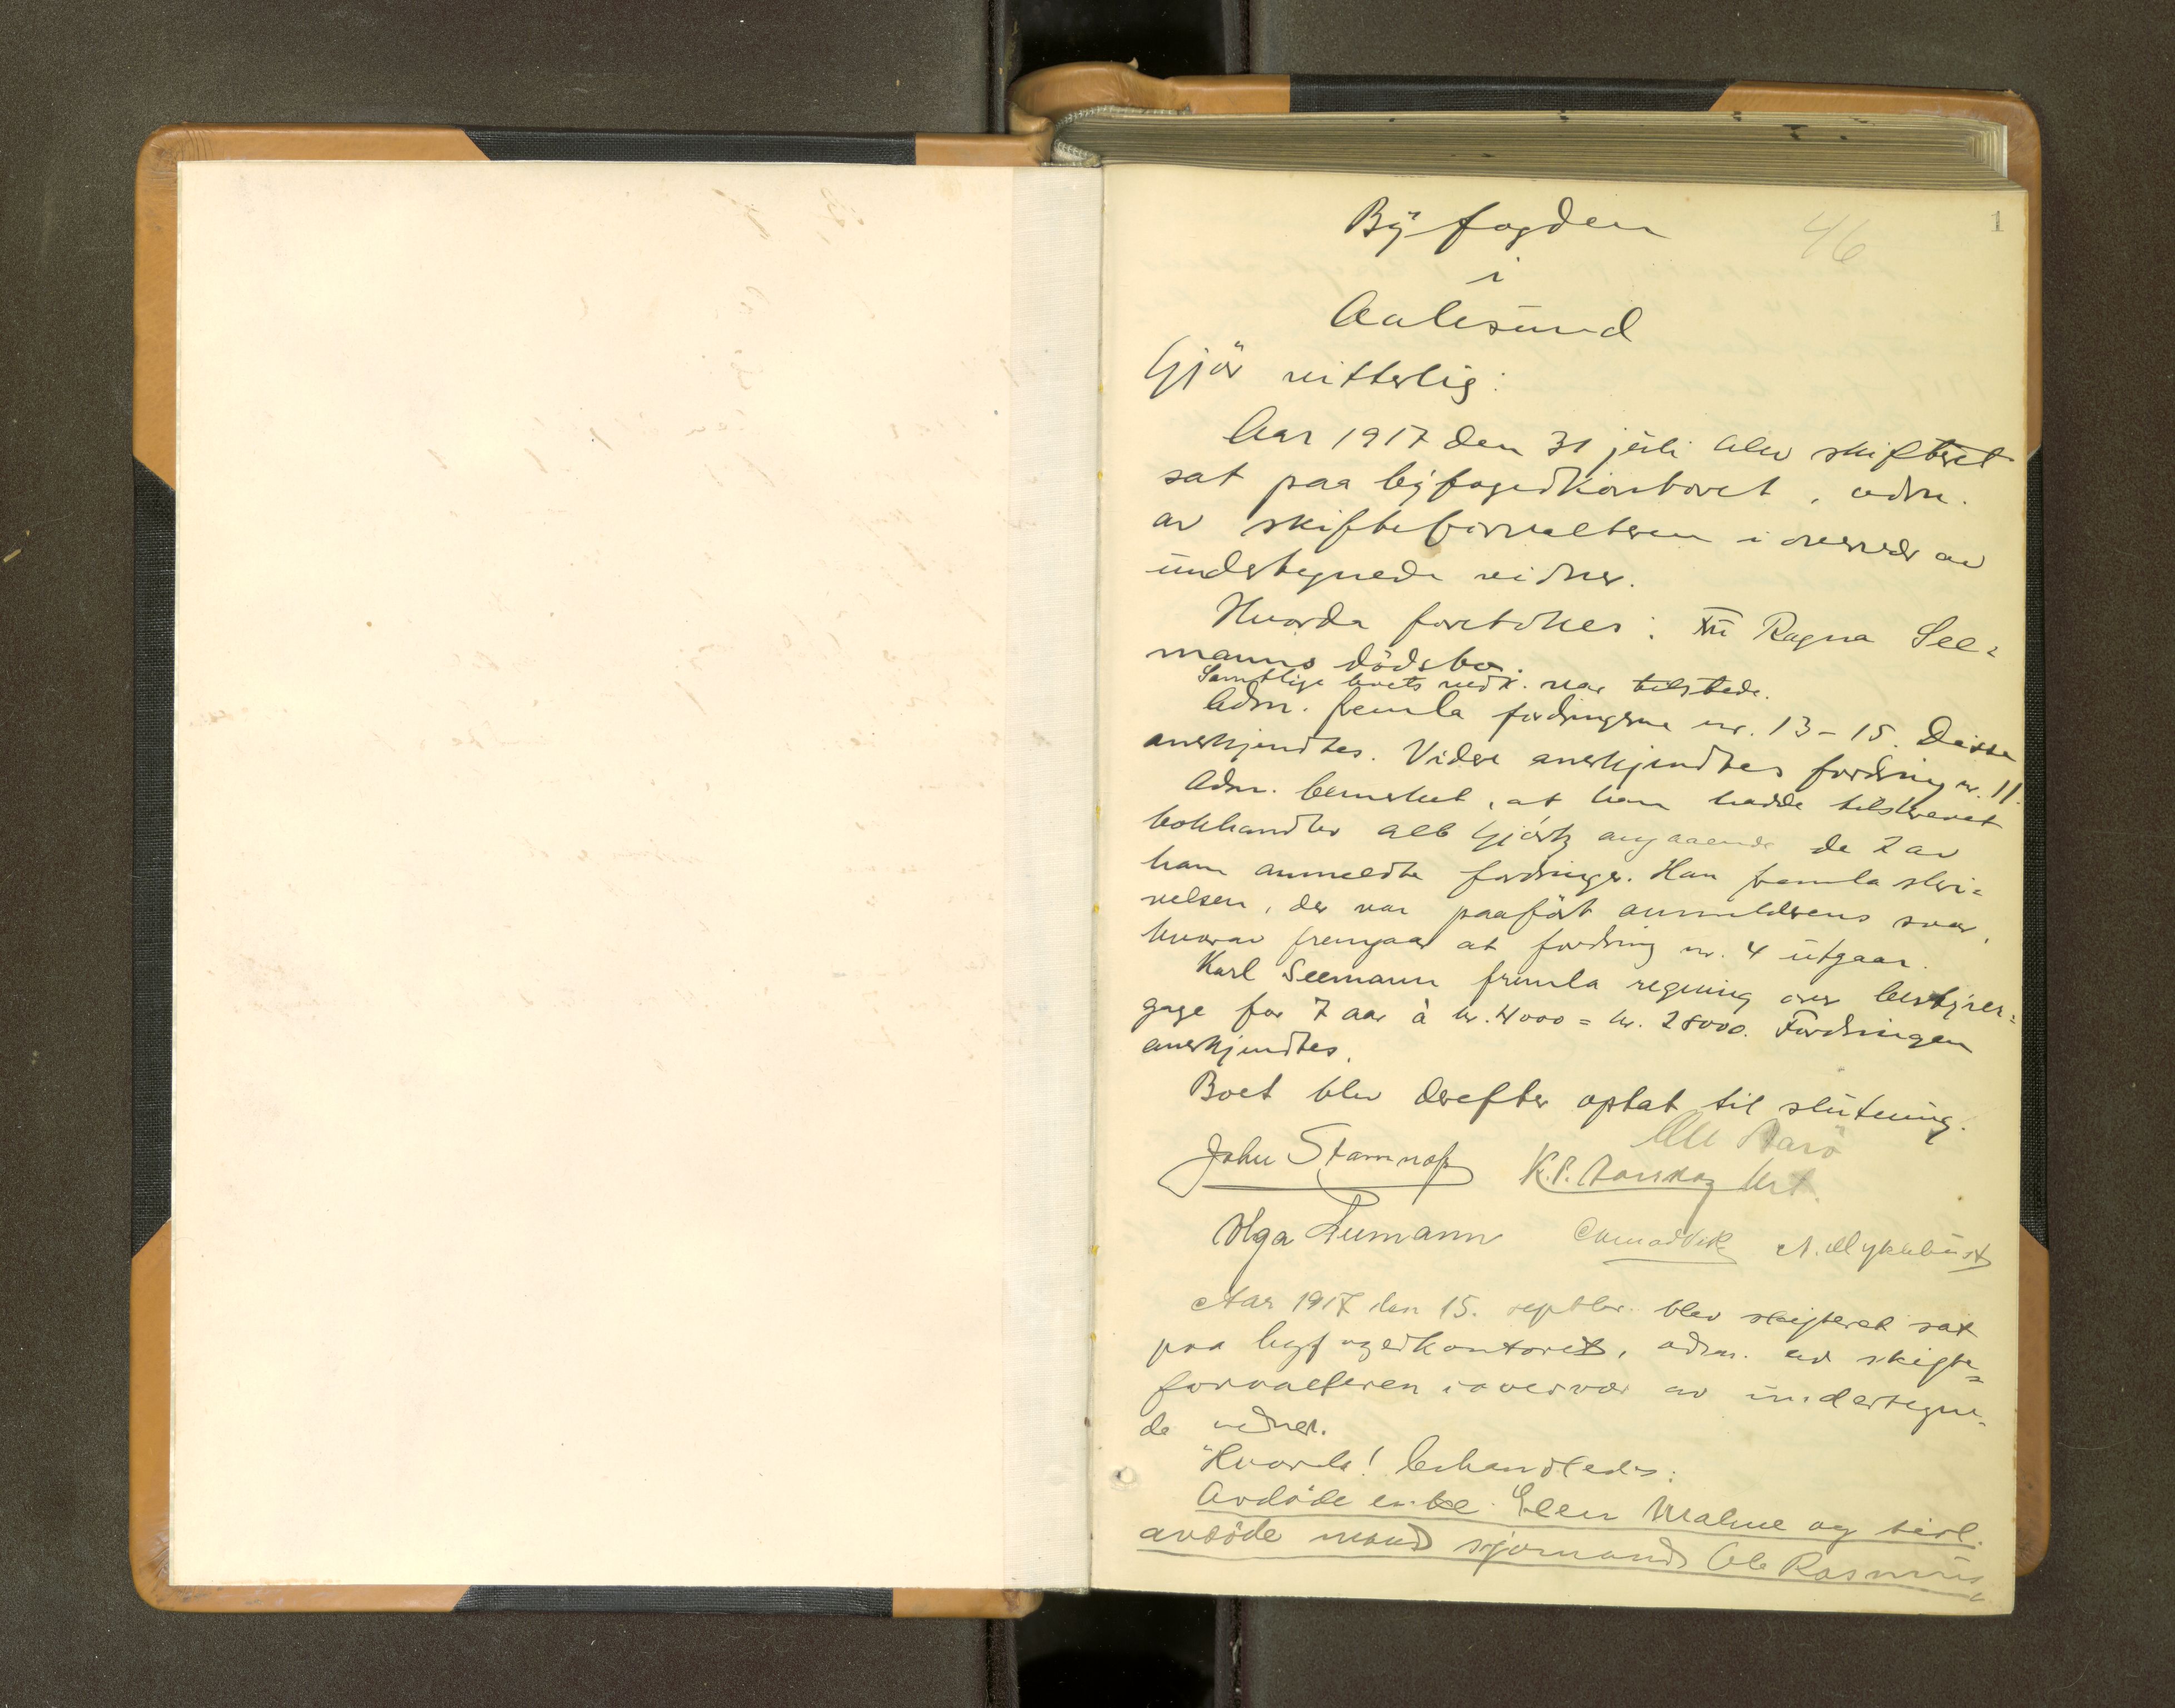 1
46
Byfogden
i
Aalesund
Gjör vitterlig:
Aar 1917 den 31 juli blev skifteret
sat paa byfogedkontoret, adm.
av skifteforvalteren i overvær av
undertegnede vidner.
Hvorda foretokes: XII Ragna See=
manns dödsbo.
Samtlige boets vedk. var tilstede.
Adm. fremla fordringerne nr. 13-15. Disse
anerkjendtes. Videre anerkjendtes fordring nr. 11.
Adm. bemerket, at han hadde tilskrevet
bokhandler Alb Gjörtz angaaende de 2 av
ham anmeldte fordringer. Han fremla skri=
velsen, der var paafört anmelderens svar,
hvorav fremgaar at fordring nr. 4 utgaar.
Karl Seemann fremla regning over bestyrer=
gage for 7 aar à kr. 4000 = kr. 28000. Fordringen
anerkjendtes.
Boet blev derefter optat til slutning.
John Stamnaß K. P. Aarskog
Olga Seemann N. Myklebust
Aar 1917 den 15. septbr. blev skifteret sat
paa byfogedkontoret, adm. av skifte=
forvalteren i overvær av undertegne=
de vidner.
Hvorda! behandledes:
Avdöde enke Elen Malme og tidl.
avdöde mand sjömand Ole Rasmus